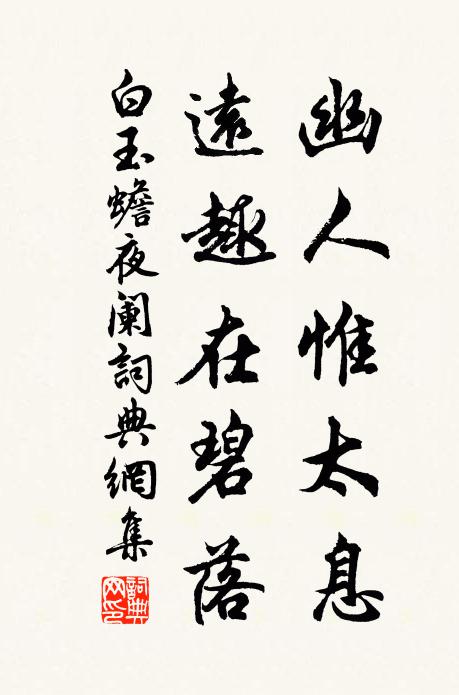 幽人惟太息
遠趣在碧落
白玉蟾夜闌詞典網集
詞典网印